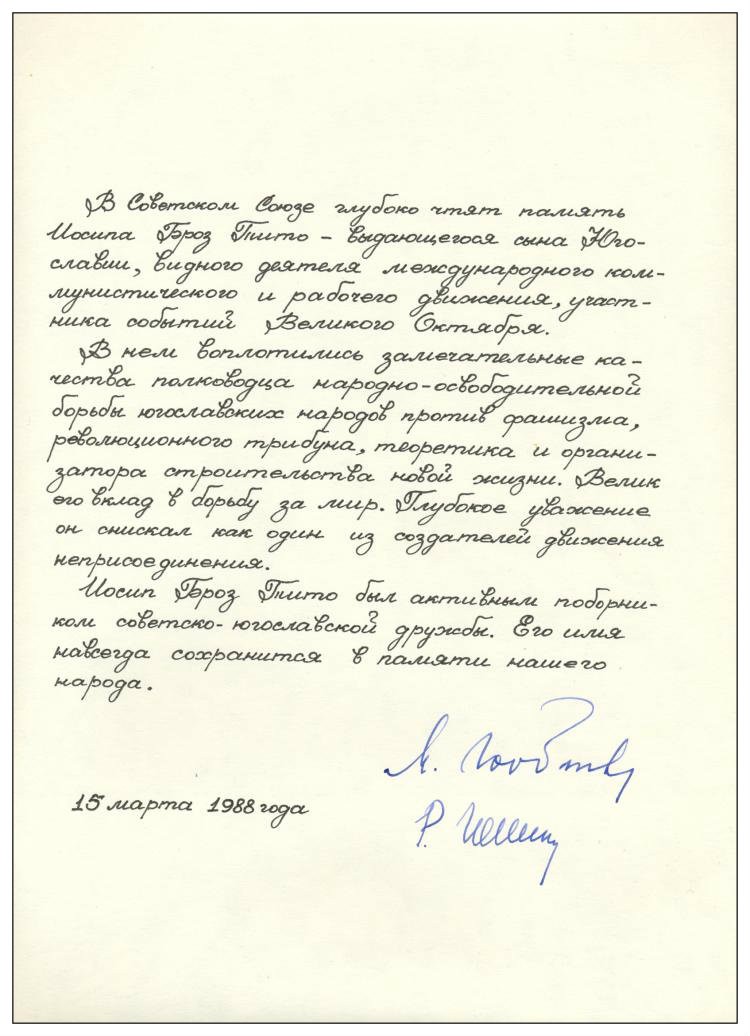 В Советском Союзе глубоко чтят память
Иосипа Броз Тито – выдающегося сына Юго-
славии, видного деятеля международного ком-
мунистического и рабочего движения, участ-
ника событий Великого Октября.
В нем воплотились замечательные ка-
чества полководца народно-освободительной
борьбы югославских народов против фашизма,
революционного трибуна, теоретика и органи-
затора строительства новой жизни. Велик
его вклад в борьбу за мир. Глубокое уважение
он снискал как один из создателей движения
неприсоединения.
Иосип Броз Тито был активным поборни-
ком советско-югославской дружбы. Его имя
навсегда сохранится в памяти нашего
народа.
М.
15 марта 1988 года
Р.